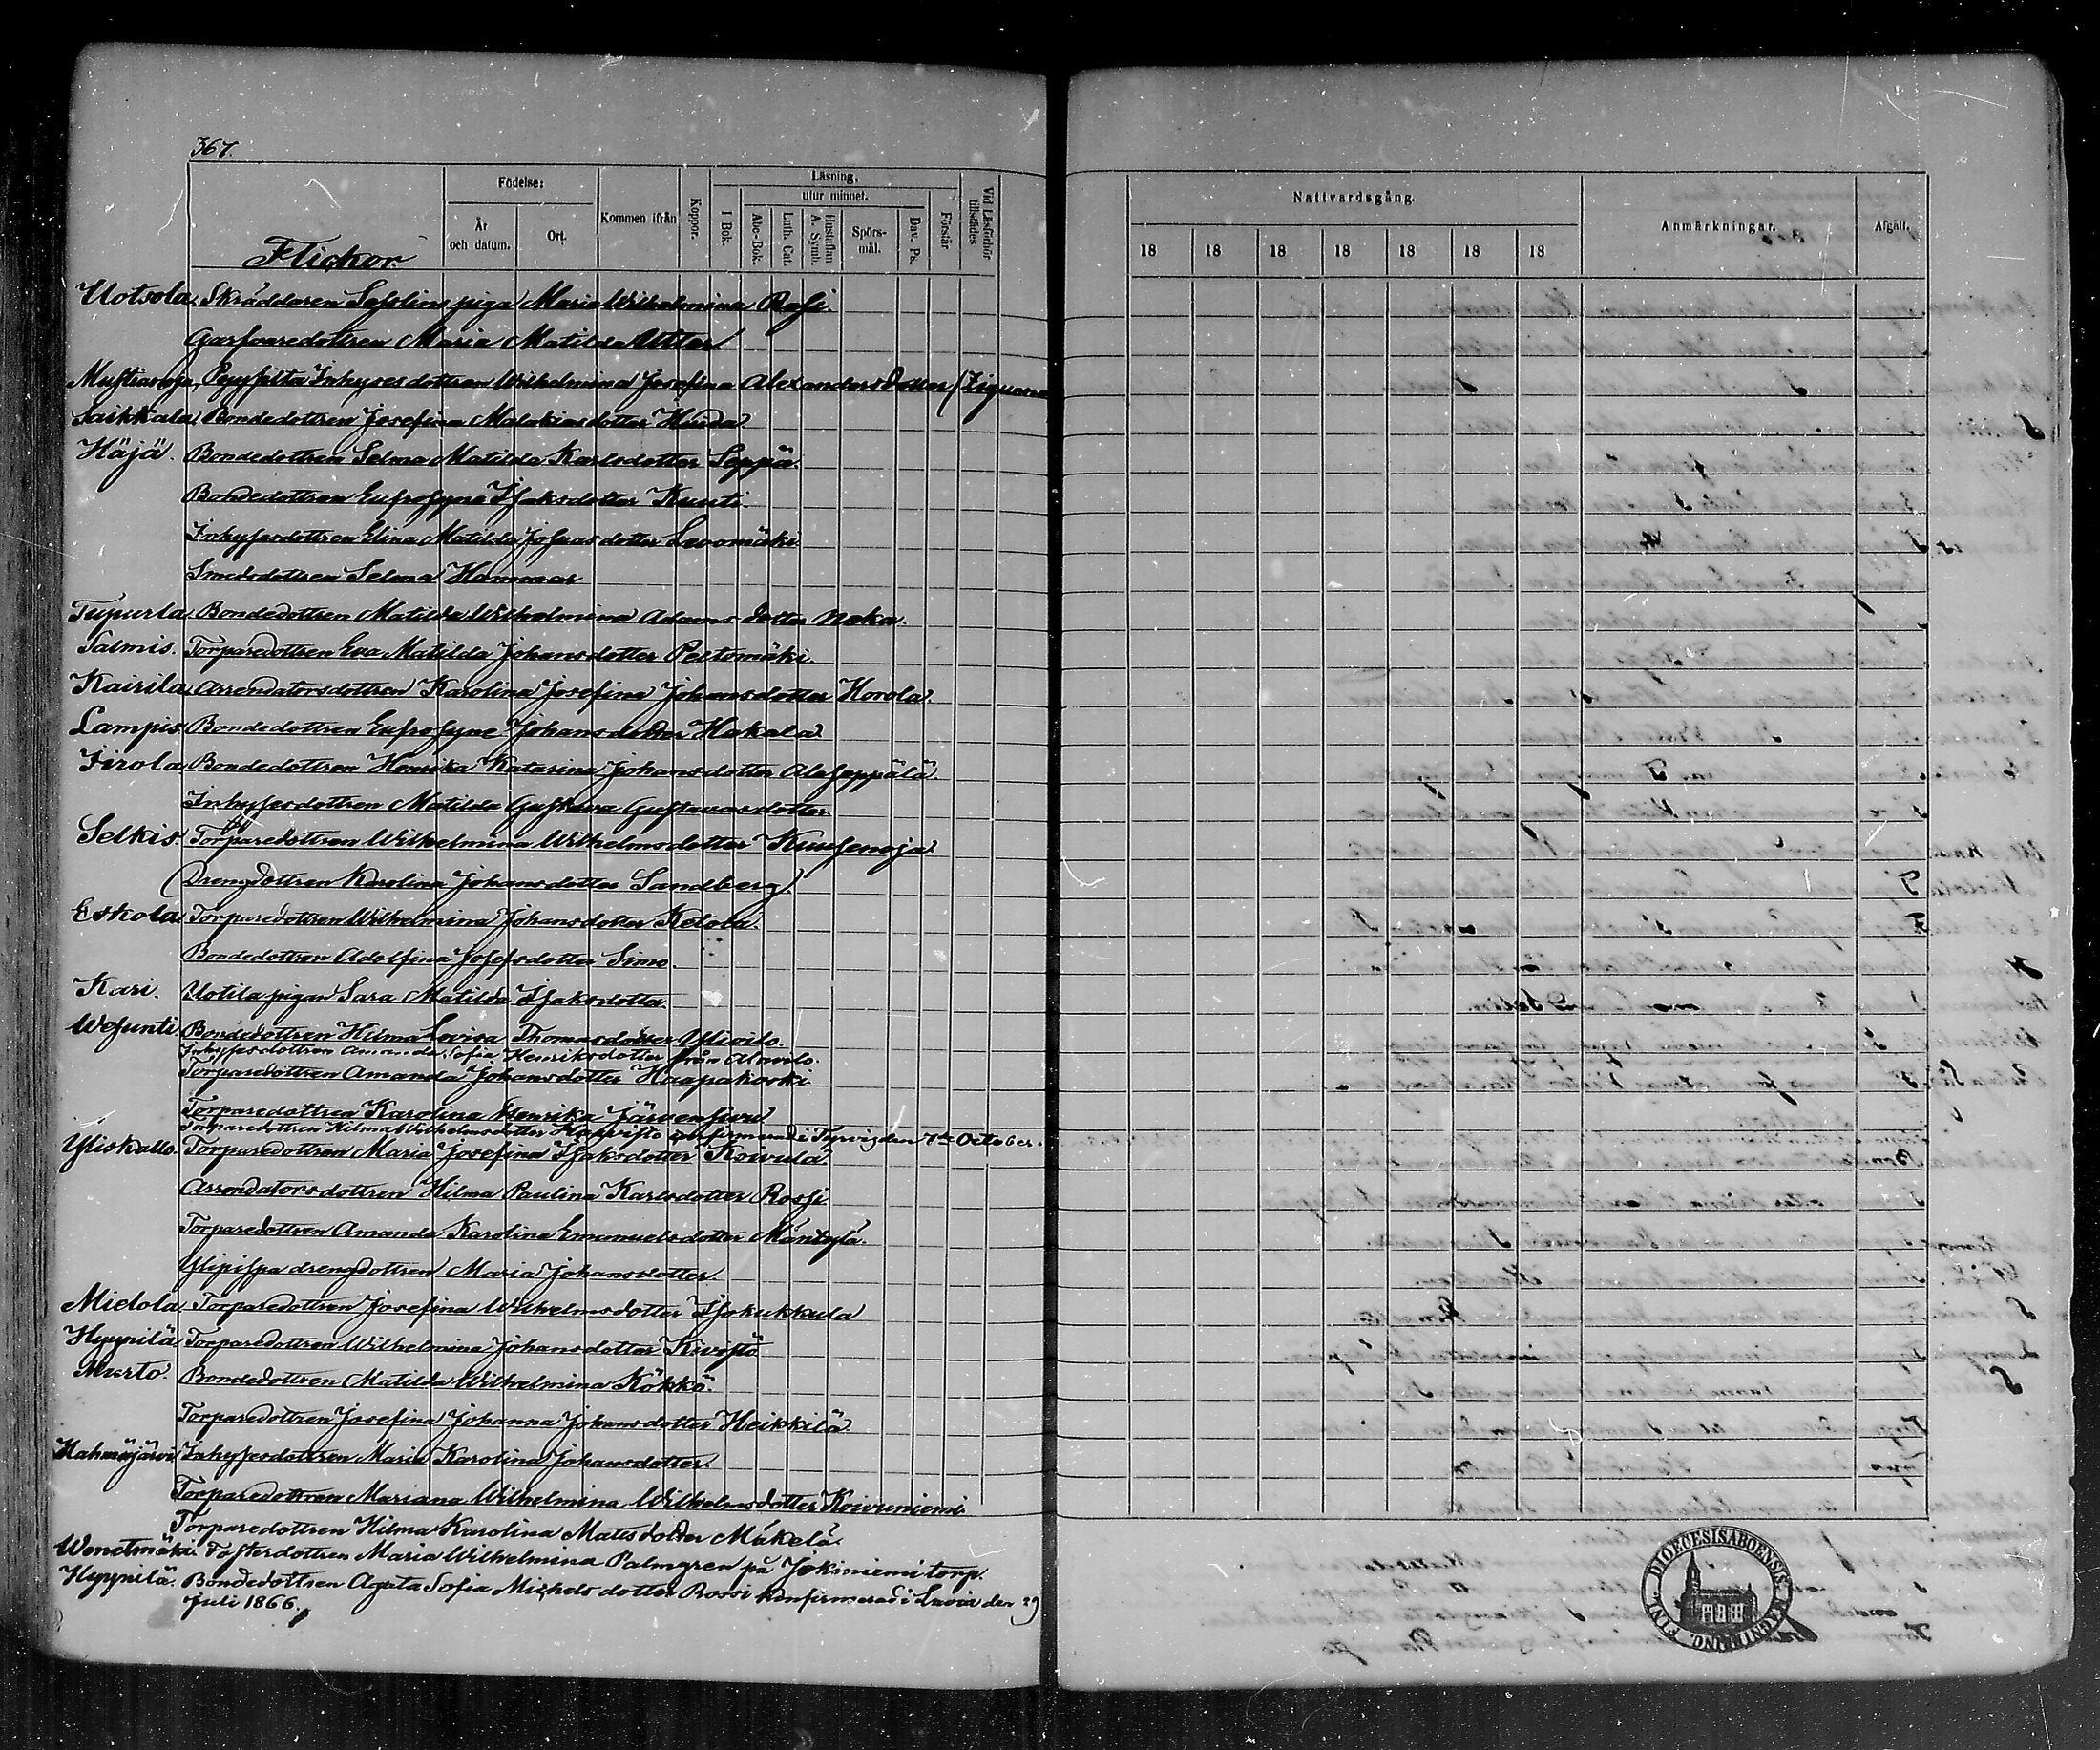 367.
Flickor.
Födelse:
År och datum.
Ort.
Kommen ifrån
Koppor.
Läsning.
utur minnet.
I Bok.
Abc-Bok.
Luth. Cat.
Hustaflan A. Symb.
Spörs-mål.
Dav. Ps.
Förstår
Vid Läsförhör tillstädes
Nattvardsgång.
18 18 18 18 18 18 18
Anmärkningar.
Afgått.
Uotsola. Skräddaren piga Maria Wilhelmina Rossi.
Garfvaredottren Maria Matilda Utter
Inhyses dottren Wilhelmina Josefina Alexandersdotter (Ziguenare
Saikkala Bondedottren Josefina Malakiasdotter Huida
Häjä. Bondedottren Selma Matilda Karlsdotter Seppä.
Bondedottren Eufrosyne Isaksdotter Kunti.
Inhysesdottren Elina Matilda Josuas dotter Levomäki
Smedsdottren Selma Hammar
Tupurla Bondedottren Matilda Wilhelmina Adams dotter Noka.
Salmis. Torparedottren Eva Matilda Johansdotter Peltomäki.
Kairila Arrendatorsdottren Karolina Josefina Johansdotter Horola.
Lampis Bondedottren Eufrosyne Johansdotter Hakala
Jirola Bondedottren Henrika Katarina Johansdotter Alaseppälä.
Inhysesdottren Matilda Gustava Gustavasdotter
Selkis. Torparedottren Wilhelmina Wilhelmsdotter Kuusenoja
(Drengdottren Karolina Johansdotter Sandberg)
Eskola Torparedottren Wilhelmina Johansdotter Ketola.
Bondedottren Adolfina Josefsdotter Simo.
Kari. Uotila pigan Sara Matilda Isaksdotter.
Wesunti. Bondedottren Hilma Lovisa Thomasdotter Ylivilo.
Inhysesdottren Amanda Sofia Henriksdotter från Alavilo.
Torparedottren Amanda Johansdotter Haapakoski
Torparedottren Karolina Henrika Järvensivu
Torparedottren Hilma Wilhelmsdotter Koivisto confirmerad i Tyrvis den 7de October.
Yliskallo. Torparedottren Maria Josefina Isaksdotter Koivula.
Arrendatorsdottren Hilma Paulina Karlsdotter Rossi
Torparedottren Amanda Karolina Emanuelsdotter Mäntylä.
Ylipispa drengdottren Maria Johansdotter.
Mielola Torparedottren Josefina Wilhelmsdotter Isokukkula
Hyynilä Torparedottren Wilhelmina Johansdotter Kivistö
Murto. Bondedottren Matilda Wilhelmina Kökkö.
Torparedottren Josefina Johanna Johansdotter Heikkilä.
Kahmajärvi Inhysesdottren Maria Karolina Johansdotter.
Torparedottren Mariana Wilhelmina Wilhelmsdotter Koivuniemi
Torparedottren Hilma Karolina Matsdotter Mäkelä.
Wenetmäki. Fosterdottren Maria Wilhelmina Palmgren på Jokiniemi torp.
Hyynilä. Bondedottren Agata Sofia Michelsdotter Rossi konfirmerad i Lavia den 29
Juli 1866.
DIOECESIS ABOENSIS. MAGNI PRINC. FINL.